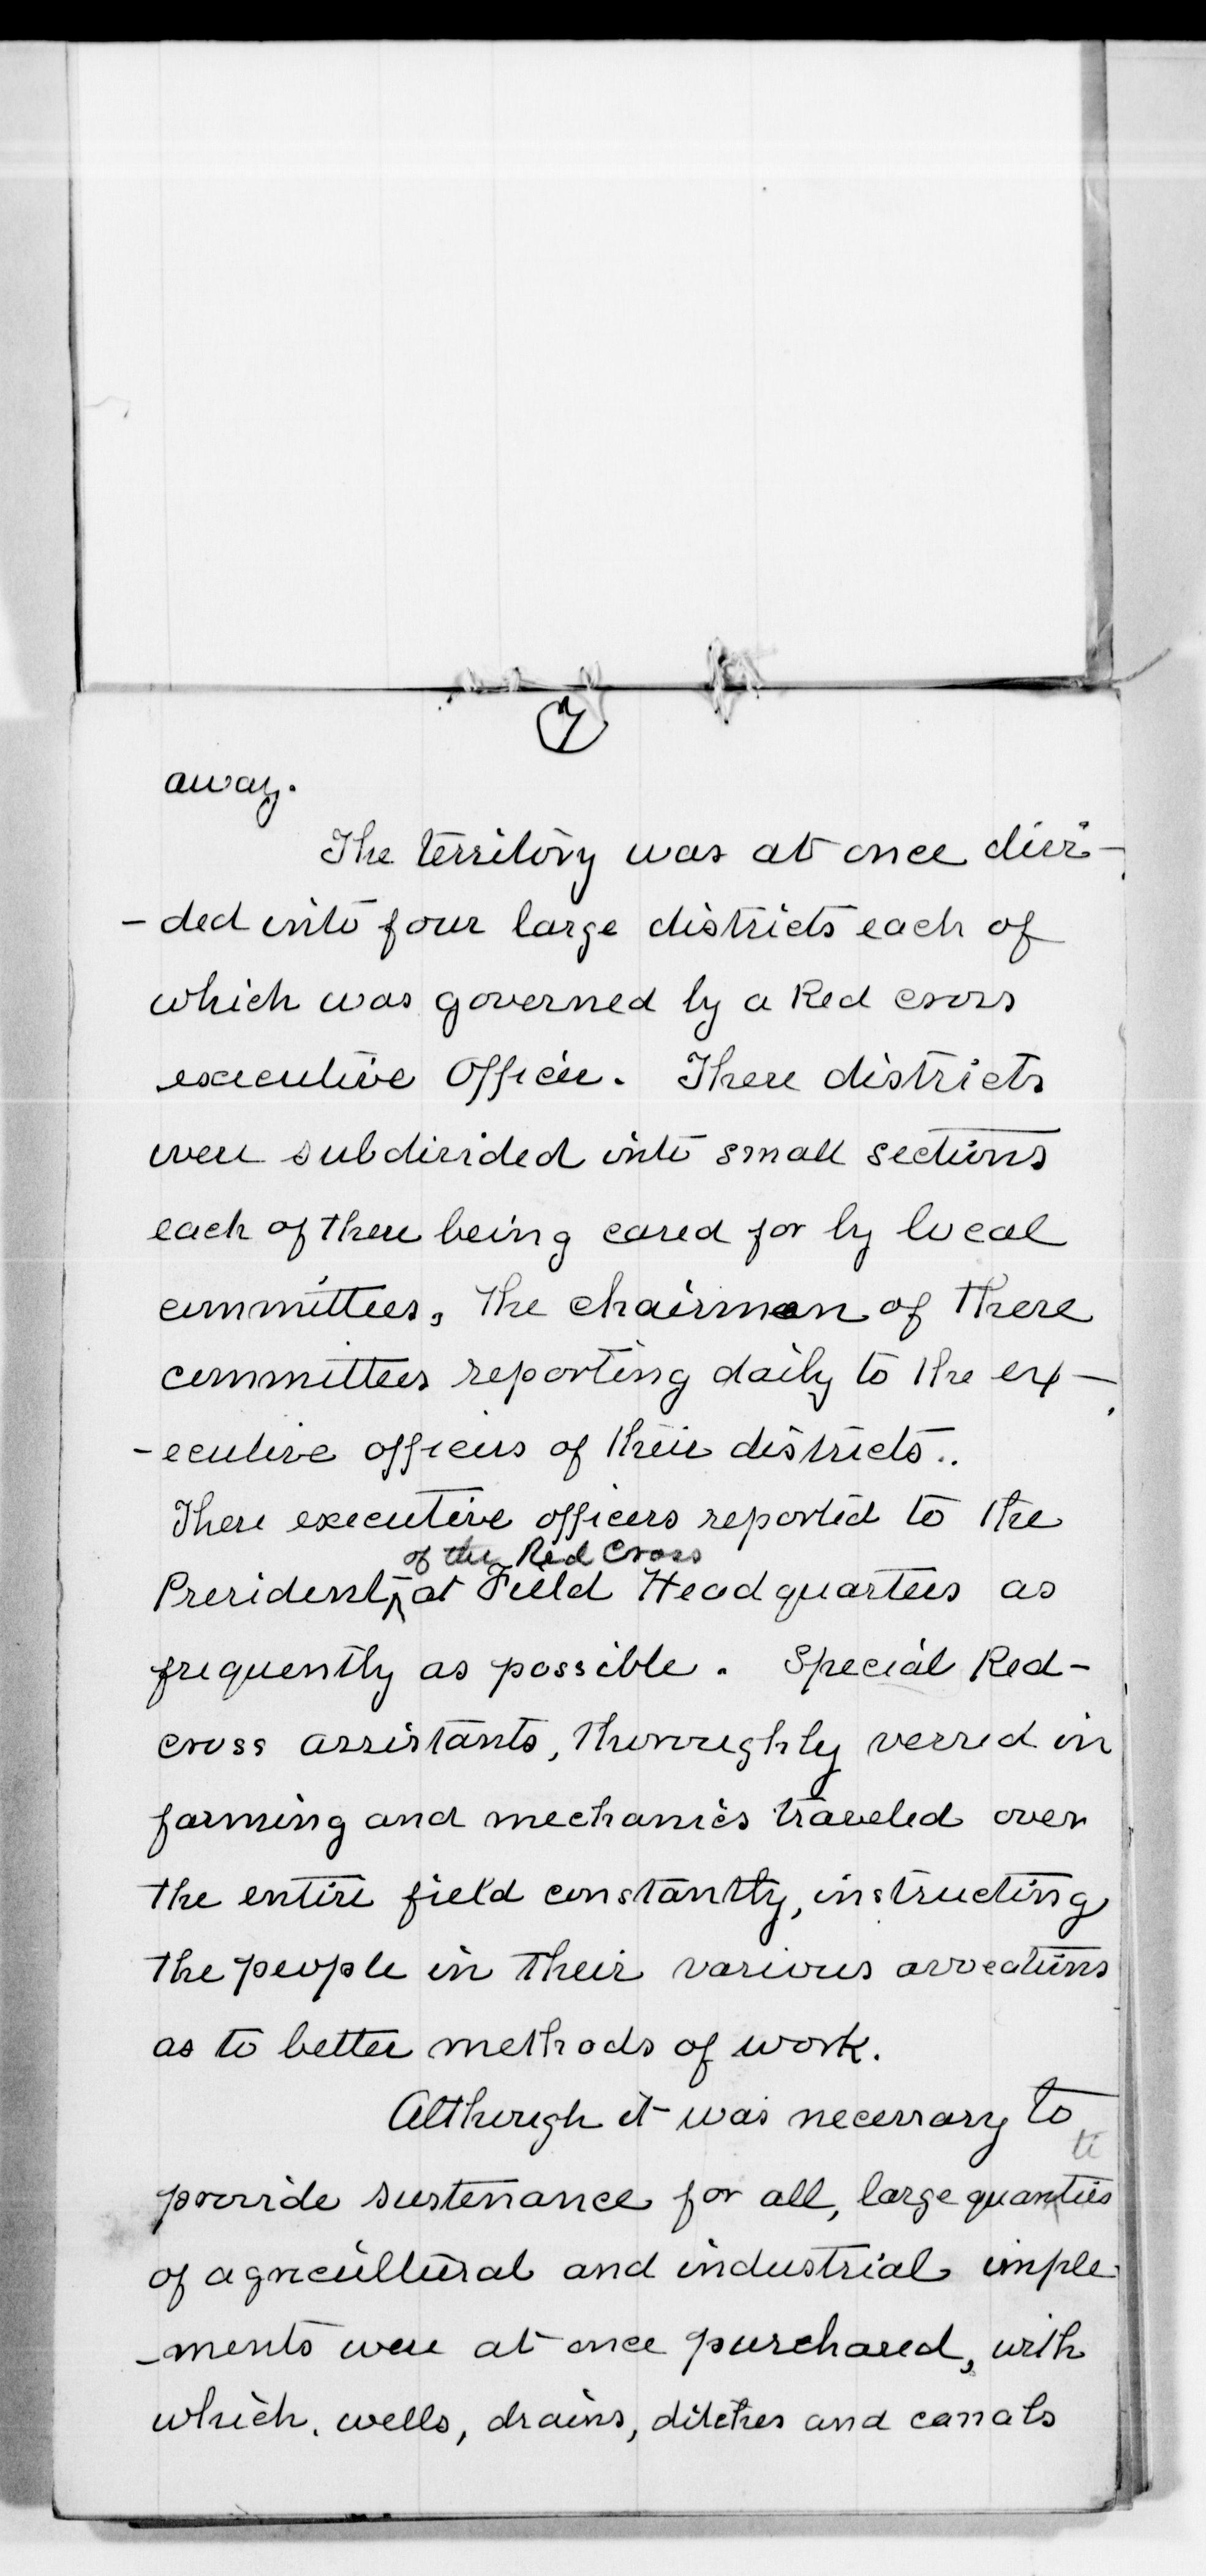 7
away.
The territory was at once divi-
- ded into four large districts each of
which was governed by a Red cross
executive Officer. These districts
were subdivided into small sections
each of these being cared for by local
committees, the chairman of these
committees reporting daily to the ex-
- ecutive officers of their districts..
These executive officers reported to the
of the Red Cross
President, ^ at Field Headquarters as
frequently as possible. Special Red-
cross assistants, thoroughly versed in
farming and mechanics traveled over
the entire field constantly, instructing
the people in their various avocations
as to better methods of work.
Although it was necessary to
ti
provide sustenance for all, large quan^ties
of agricultural and industrial imple
-ments were at once purchased, with
which, wells, drains, ditches and canals